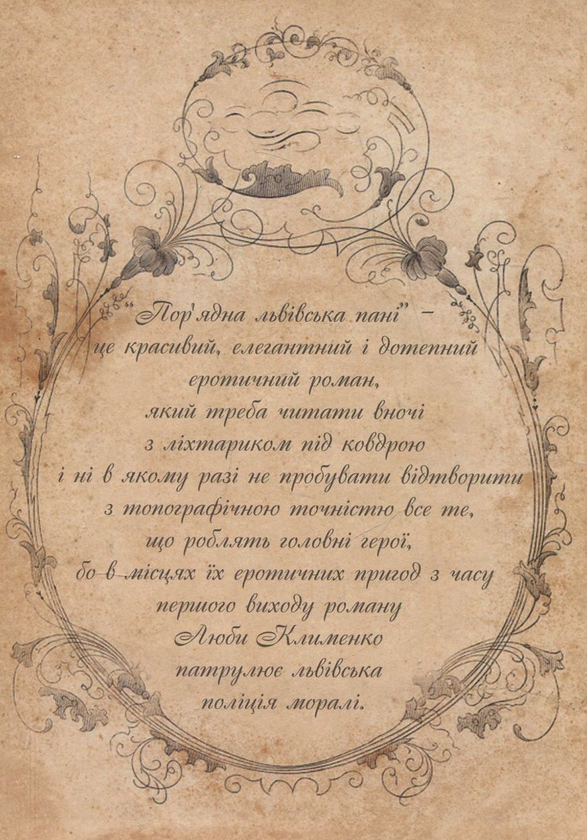 "Пор'ядна львівська пані" –
це красивий, елегантний і дотепний
еротичний роман,
який треба читати вночі
з ліхтариком під ковдрою
і ні в якому разі не пробувати відтворити
з топографічною точністю все те,
що роблять головні герої,
бо в місцях їх еротичних пригод з часу
першого виходу роману
Люби Клименко
патрулює львівська
поліція моралі.